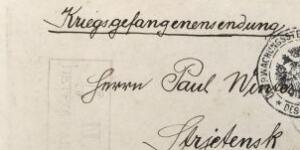 Kriegsgefangenensendung
Herrn Paul
Strjetensk